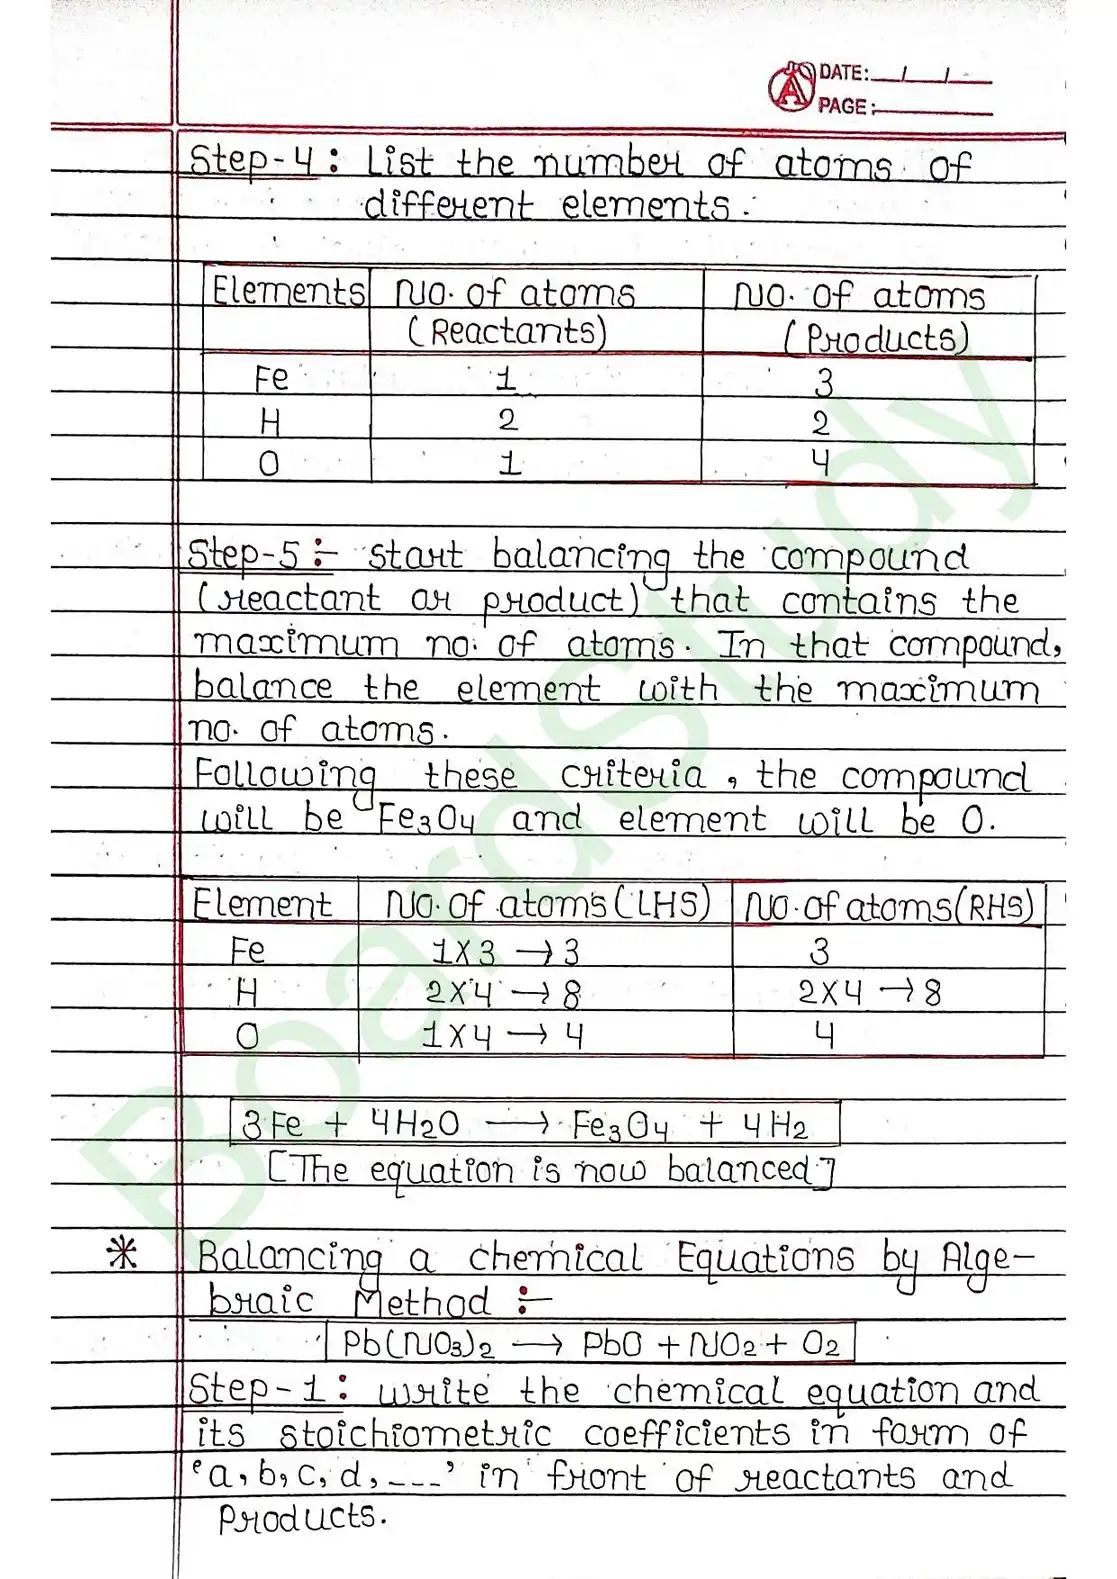 DATE: / /
PAGE:
Step-4: List the number of atoms of
different elements.
Elements No. of atoms (Reactants) No. of atoms (Products)
Fe 1 3
H 2 2
O 1 4
Step-5:- start balancing the compound
(reactant or product) that contains the
maximum no. of atoms. In that compound,
balance the element with the maximum
no. of atoms.
Following these criteria, the compound
will be Fe3O4 and element will be O.
Element No. of atoms (LHS) No. of atoms (RHS)
Fe 1X3 → 3 3
H 2X4 → 8 2X4 → 8
O 1X4 → 4 4
3Fe + 4H2O → Fe3O4 + 4H2
[The equation is now balanced]
* Balancing a chemical Equations by Alge-
braic Method :-
Pb(NO3)2 → PbO + NO2 + O2
Step-1: write the chemical equation and
its stoichiometric coefficients in form of
'a, b, c, d, ----' in front of reactants and
Products.
BoardStudy